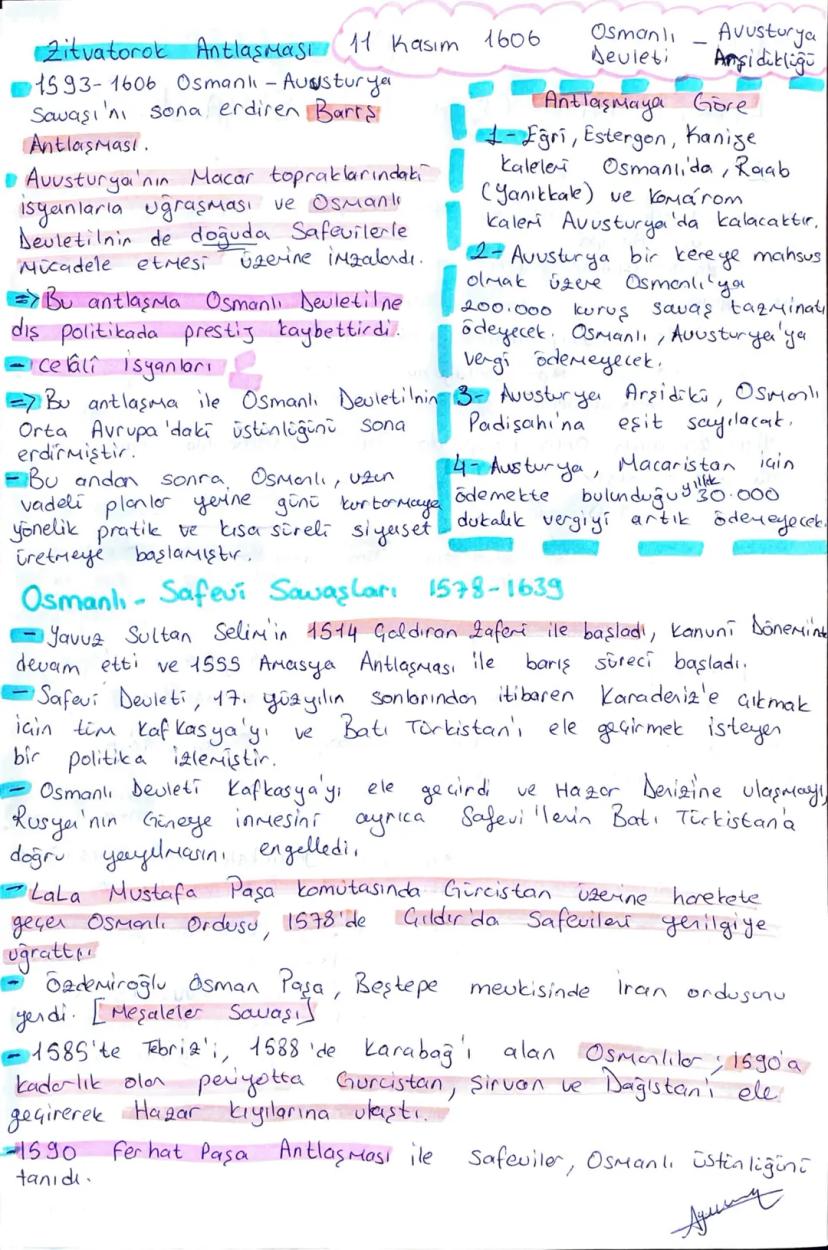 Zitvatorok Antlaşması
11 Kasım 1606
Osmanlı Devleti – Avusturya Arşidüklüğü
1593-1606 Osmanlı-Avusturya
Savaşı'nı sona erdiren Barış
Antlaşması.
Avusturya'nın Macar topraklarındaki
isyanlarla uğraşması ve Osmanlı
Devleti'nin de doğuda Safevilerle
mücadele etmesi üzerine imzalandı.
=> Bu antlaşma Osmanlı Devleti'ne
dış politikada prestij kaybettirdi.
- Celâlî isyanları
=> Bu antlaşma ile Osmanlı Devleti'nin
Orta Avrupa'daki üstünlüğünü sona
erdirmiştir.
- Bu andan sonra, Osmanlı, uzun
vadeli planlar yerine günü kurtarmaya
yönelik pratik ve kısa süreli siyaset
üretmeye başlamıştır.
Antlaşmaya Göre
1- Eğri, Estergon, Kanije
kaleleri Osmanlı'da, Raab
(Yanıkkale) ve Komárom
kaleri Avusturya'da kalacaktır.
2- Avusturya bir kereye mahsus
olmak üzere Osmanlı'ya
200.000 kuruş savaş tazminatı
ödeyecek. Osmanlı, Avusturya'ya
vergi ödemeyecek.
3- Avusturya Arşidükü, Osmanlı
Padişahı'na eşit sayılacak.
4- Austurya, Macaristan için
ödemekte bulunduğu yıllık 30.000
dukalık vergiyi artık ödemeyecek.
Osmanlı - Safevî Savaşları 1578-1639
- Yavuz Sultan Selim'in 1514 Çaldıran Zaferi ile başladı, Kanunî Dönemin
devam etti ve 1555 Amasya Antlaşması ile barış süreci başladı.
- Safevî Devleti, 17. yüzyılın sonlarından itibaren Karadeniz'e çıkmak
için tüm Kafkasya'yı ve Batı Türkistan'ı ele geçirmek isteyen
bir politika izlemiştir.
- Osmanlı Devleti Kafkasya'yı ele geçirdi ve Hazar Denizine ulaşmayı,
Rusya'nın Güneye inmesini ayrıca Safevî'lerin Batı Türkistan'a
doğru yayılmasını engelledi.
- Lala Mustafa Paşa komutasında Gürcistan üzerine harekete
geçen Osmanlı Ordusu, 1578'de Çıldır'da Safevileri yenilgiye
uğrattı.
- Özdemiroğlu Osman Paşa, Beştepe mevkisinde İran ordusunu
yendi. [Meşaleler Savaşı]
- 1585'te Tebriz'i, 1588'de Karabağ'ı alan Osmanlılar; 1590'a
kadarlık olan periyotta Gürcistan, Şirvan ve Dağıstan'ı ele
geçirerek Hazar kıyılarına ulaştı.
- 1590 Ferhat Paşa Antlaşması ile Safeviler, Osmanlı üstünlüğünü
tanıdı.